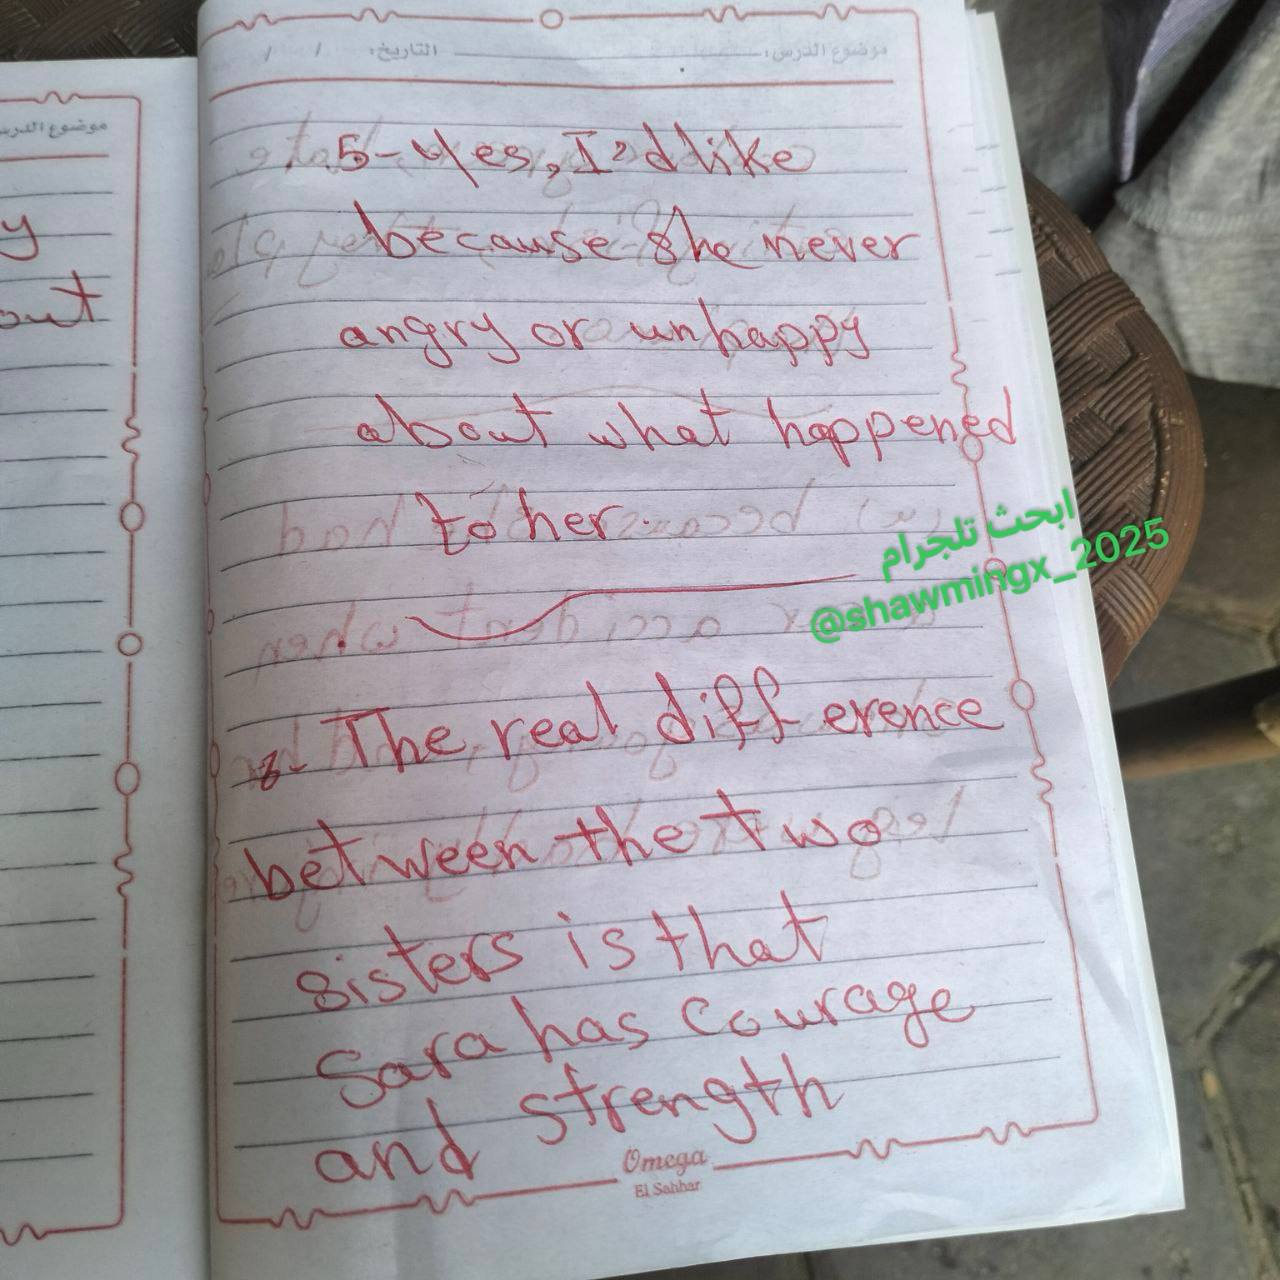 موضوع الدرس: التاريخ: / /
5- Yes, I'd like
because she never
angry or unhappy
about what happened
to her.
ابحث تلجرام
@shawmingx_2025
6- The real difference
between the two
sisters is that
Sara has courage
and strength
Omega
El Sahhar
موضوع الدرس
y
out